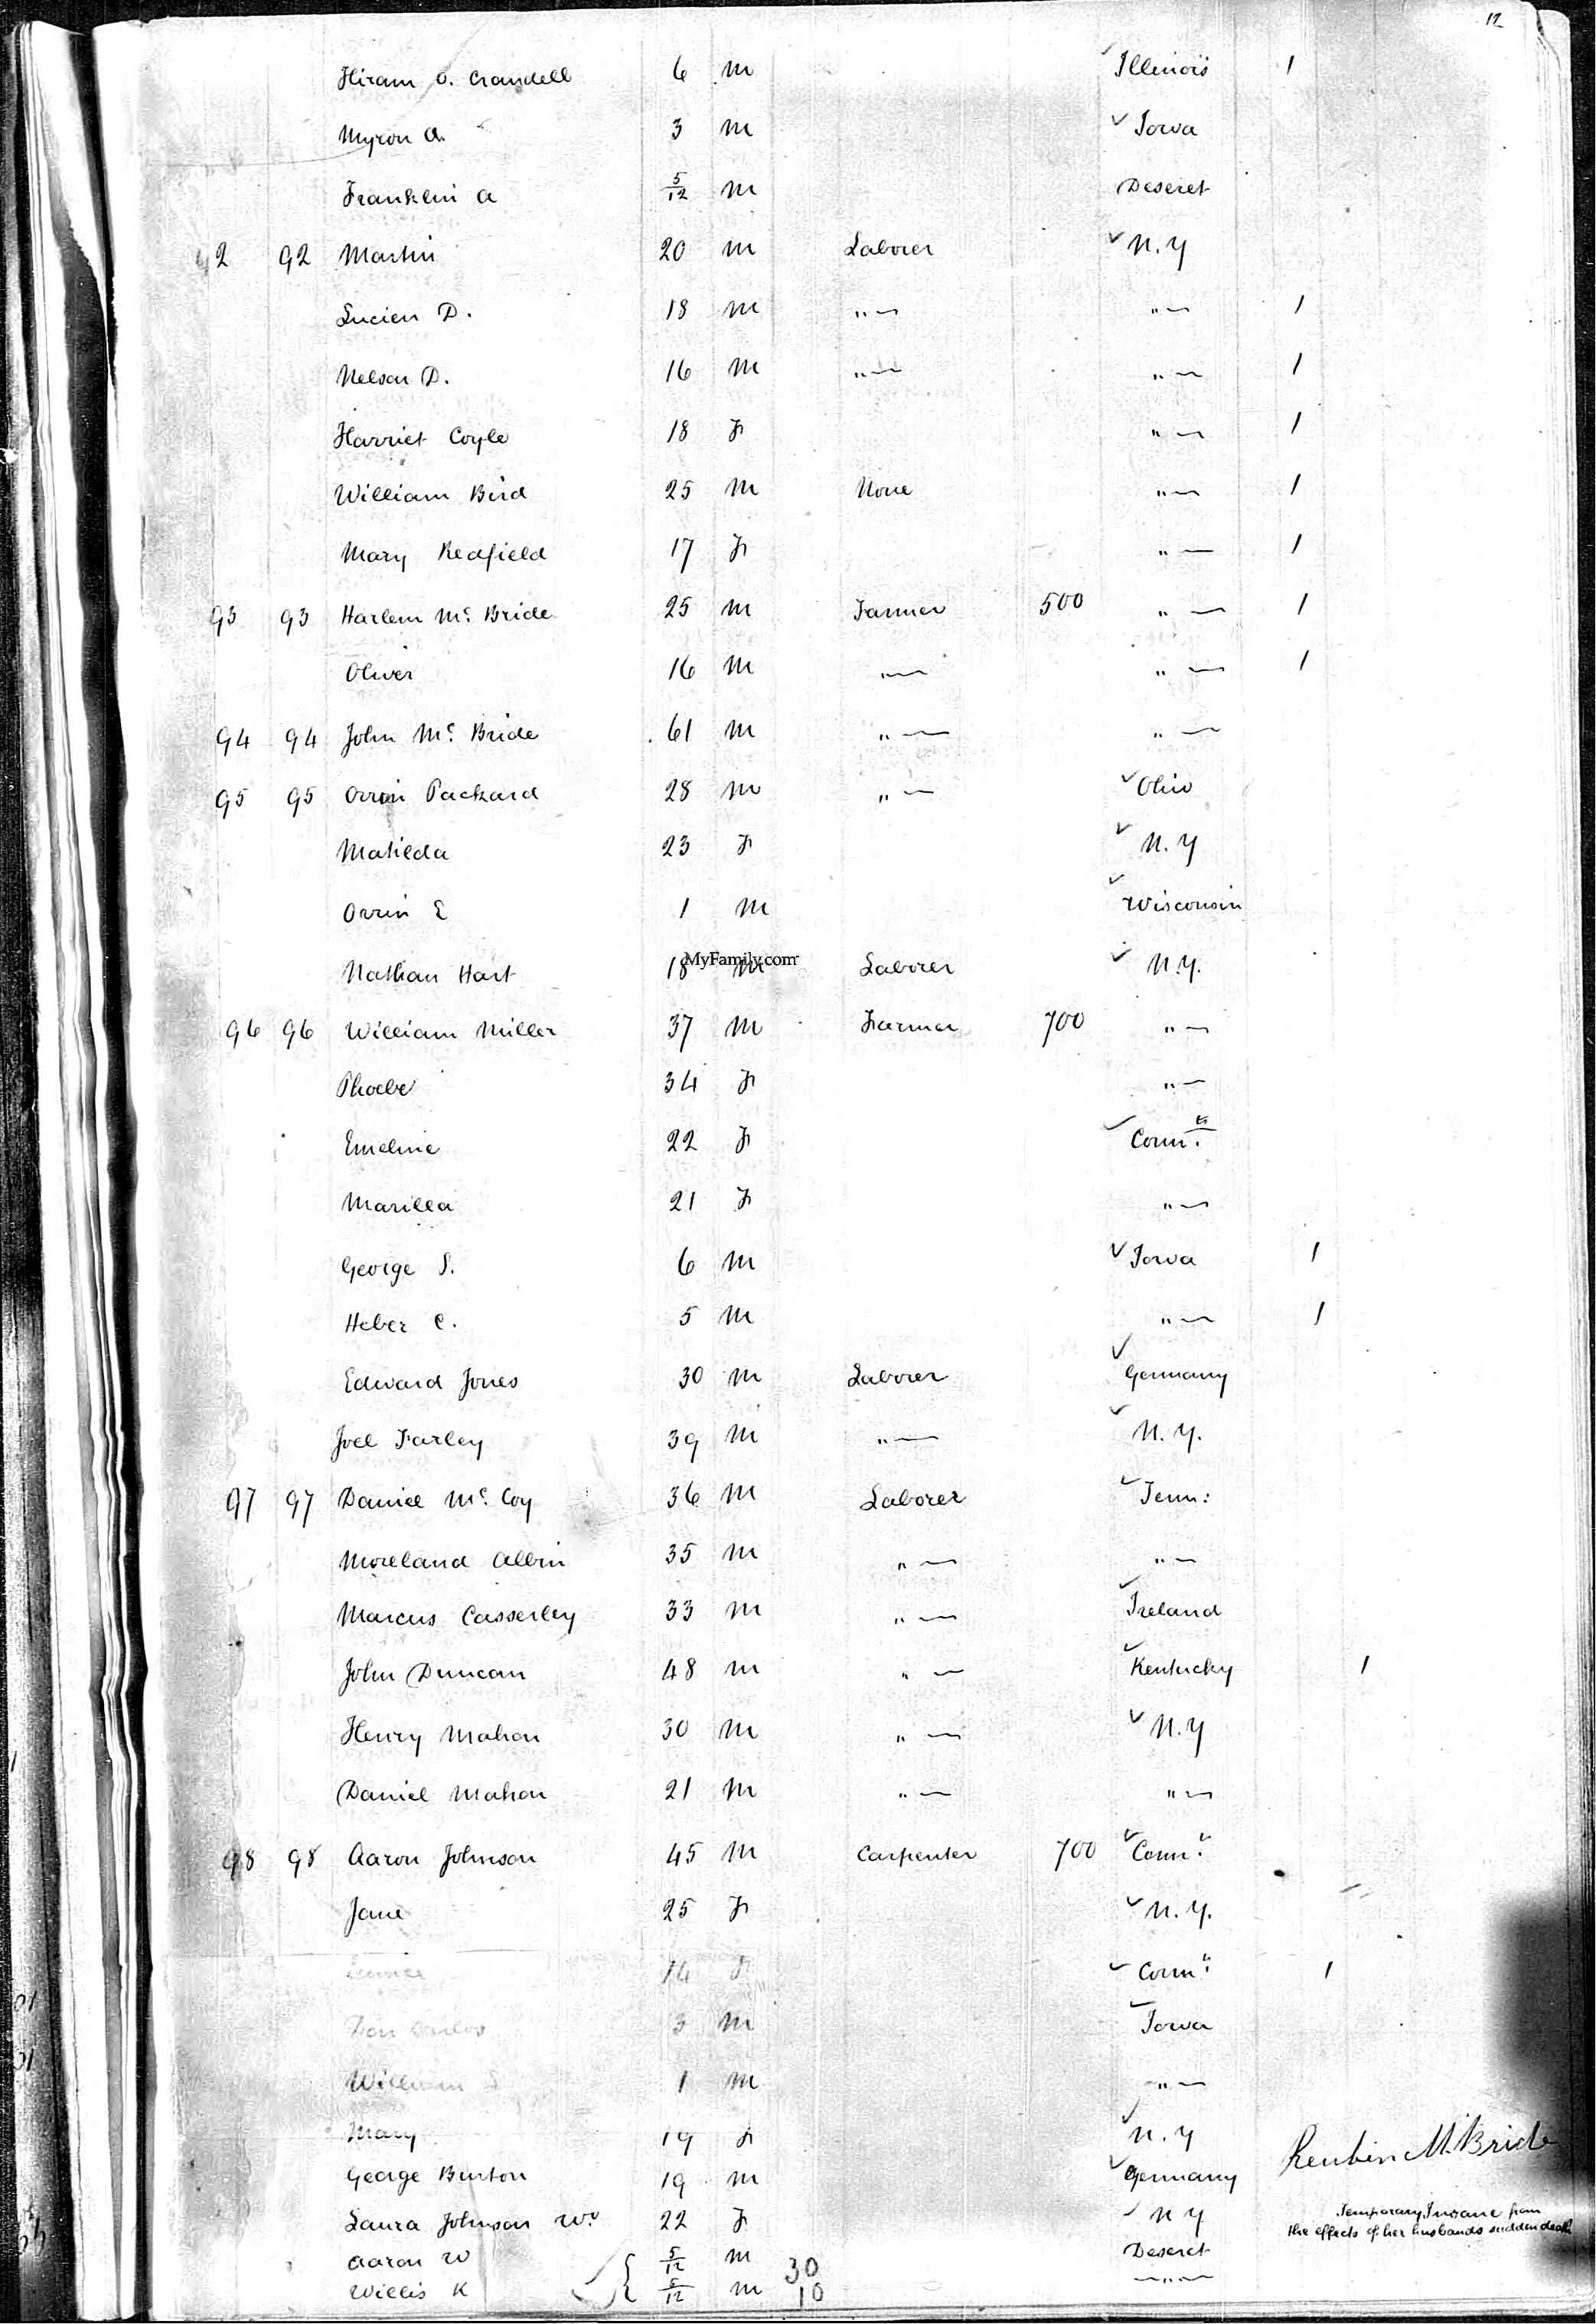 12
Hiram O. Crandell 6 m Illinois 1
Myron A. 3 m Iowa
Franklin A 5/12 m Deseret
92 92 Martin 20 m Laborer N.Y
Lucien D. 18 m " — " — 1
Nelson D. 16 m " — " — 1
Harriet Coyle 18 F " — 1
William Bird 25 m None " — 1
Mary Redfield 17 F " — 1
93 93 Harlem Mc. Bride 25 m Farmer 500 " — 1
Oliver 16 m " — " — 1
94 94 John Mc. Bride 61 m " — " —
95 95 Orrin Packard 28 m " — Ohio
Matilda 23 F N.Y
Orrin E 1 m Wisconsin
MyFamily.com
Nathan Hart 18 m Laborer N.Y.
96 96 William Miller 37 m Farmer 700 " —
Phoebe 34 F " —
Emeline 22 F Conn. t
Marilla 21 F " —
George S. 6 m Iowa 1
Heber C. 5 m " — 1
Edward Jones 30 m Laborer Germany
Joel Farley 39 m " — N.Y.
97 97 Daniel Mc. Coy 36 m Laborer Tenn:
Moreland Albin 35 m " — " —
Marcus Casserley 33 m " — Ireland
John Duncan 48 m " — Kentucky 1
Henry Mahon 30 m " — N.Y
Daniel Mahon 21 m " — " —
98 98 Aaron Johnson 45 m Carpenter 700 Conn. t
Jane 25 F N.Y.
Eunice 14 F Conn. t 1
Don Carlos 3 m Iowa
William 1 m " —
Mary 19 F N.Y
George Burton 19 m Germany
Reuben Mc Bride
Laura Johnson Wd 22 F N Y
Temporary Insane from
the effects of her husbands sudden death
Aaron W 5/12 m 30 Deseret
Willis K 5/12 m 10 " —